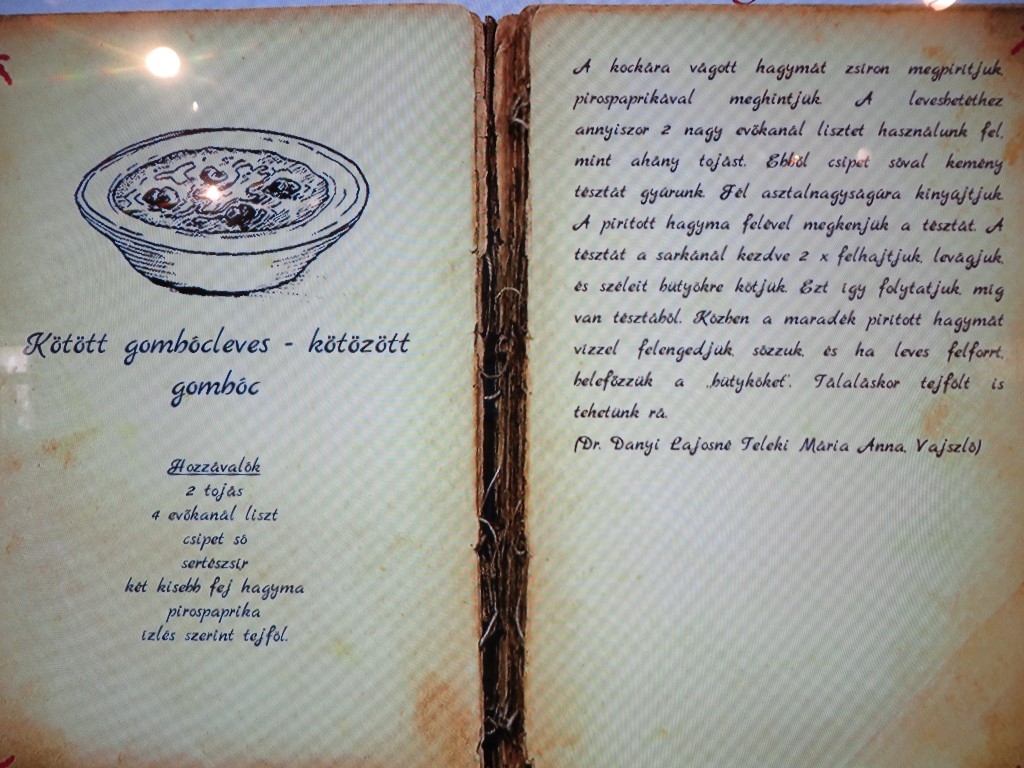 Kötött gombócleves - kötözött
gombóc
Hozzávalók
2 tojás
4 evőkanál liszt
csipet só
sertészsír
két kisebb fej hagyma
pirospaprika
ízlés szerint tejföl.
A kockára vágott hagymát zsíron megpirítjuk,
pirospaprikával meghintjük. A levesbetéthez
annyiszor 2 nagy evőkanál lisztet használunk fel,
mint ahány tojást. Ebből csipet sóval kemény
tésztát gyúrunk. Fél asztalnagyságúra kinyújtjuk.
A pirított hagyma felével megkenjük a tésztát. A
tésztát a sarkánál kezdve 2 x felhajtjuk, levágjuk,
és széleit bütyökre kötjük. Ezt így folytatjuk, míg
van tésztából. Közben a maradék pirított hagymát
vízzel felengedjük, sózzuk, és ha leves felforrt,
belefőzzük a „bütyköket”. Tálaláskor tejfölt is
tehetünk rá.
(Dr. Danyi Lajosné Teleki Mária Anna, Vajszló)